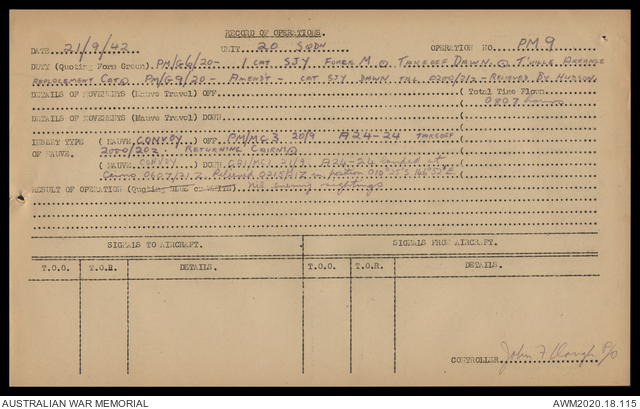 RECORD OF OPERATIONS.
DATE 21/9/42 UNIT 20 SQDN OPERATION NO. PM 9
DUTY (Quoting Form Green) PM/G6/20 - 1 CAT SJY FORCE M @ TAKEOFF DAWN @ T'VILLE ARRANGE
REPLACEMENT CAT @ PM/G9/20 - AMEND - CAT SJY DAWN TILL 0200/21Z - RELIEVED BY HUDSON.
DETAILS OF MOVEMENTS (Mauve Travel) OFF ( Total Time Flown
( 0807 hours
DETAILS OF MOVEMENTS (Mauve Travel) DOWN (
INSERT TYPE ( MAUVE CONVOY ) OFF PM/MC3 20/9 A24-24 TAKEOFF
OF MAUVE. 2000/20Z RETURNING CAIRNS @
( MAUVE CONVOY ) DOWN 21/9 A24-24 landed at
Cairns 0407/21Z Relieved 0215/21Z in position
RESULT OF OPERATION (Quoting BLUE or WHITE) nil enemy sightings
SIGNALS TO AIRCRAFT. SIGNALS FROM AIRCRAFT.
T.O.O. T.O.R. DETAILS. T.O.O. T.O.R. DETAILS.
CONTROLLER John F P/O
AUSTRALIAN WAR MEMORIAL AWM2020.18.115